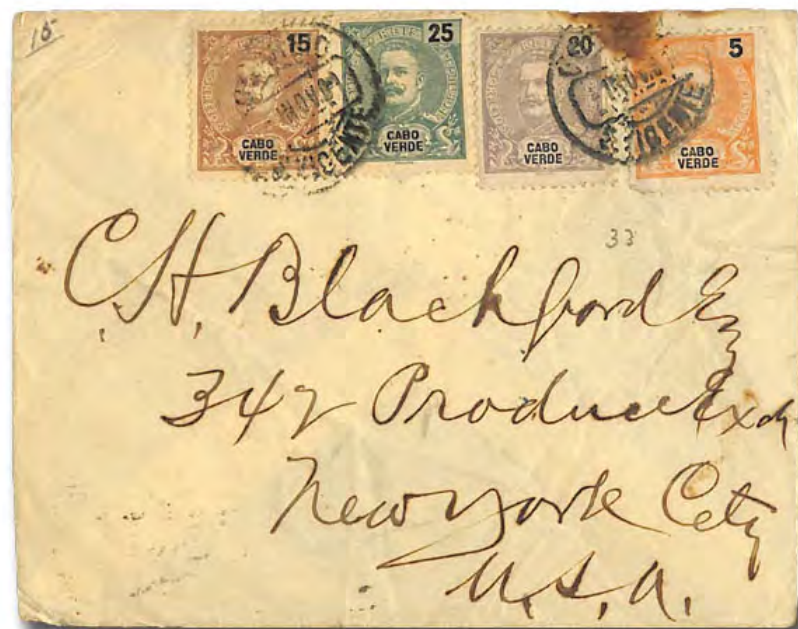 15
15 25 20 5
CABO VERDE CABO VERDE CABO VERDE CABO VERDE
33
C. H. Blackford Esq
342 Produce Exch
New York City
U.S.A.